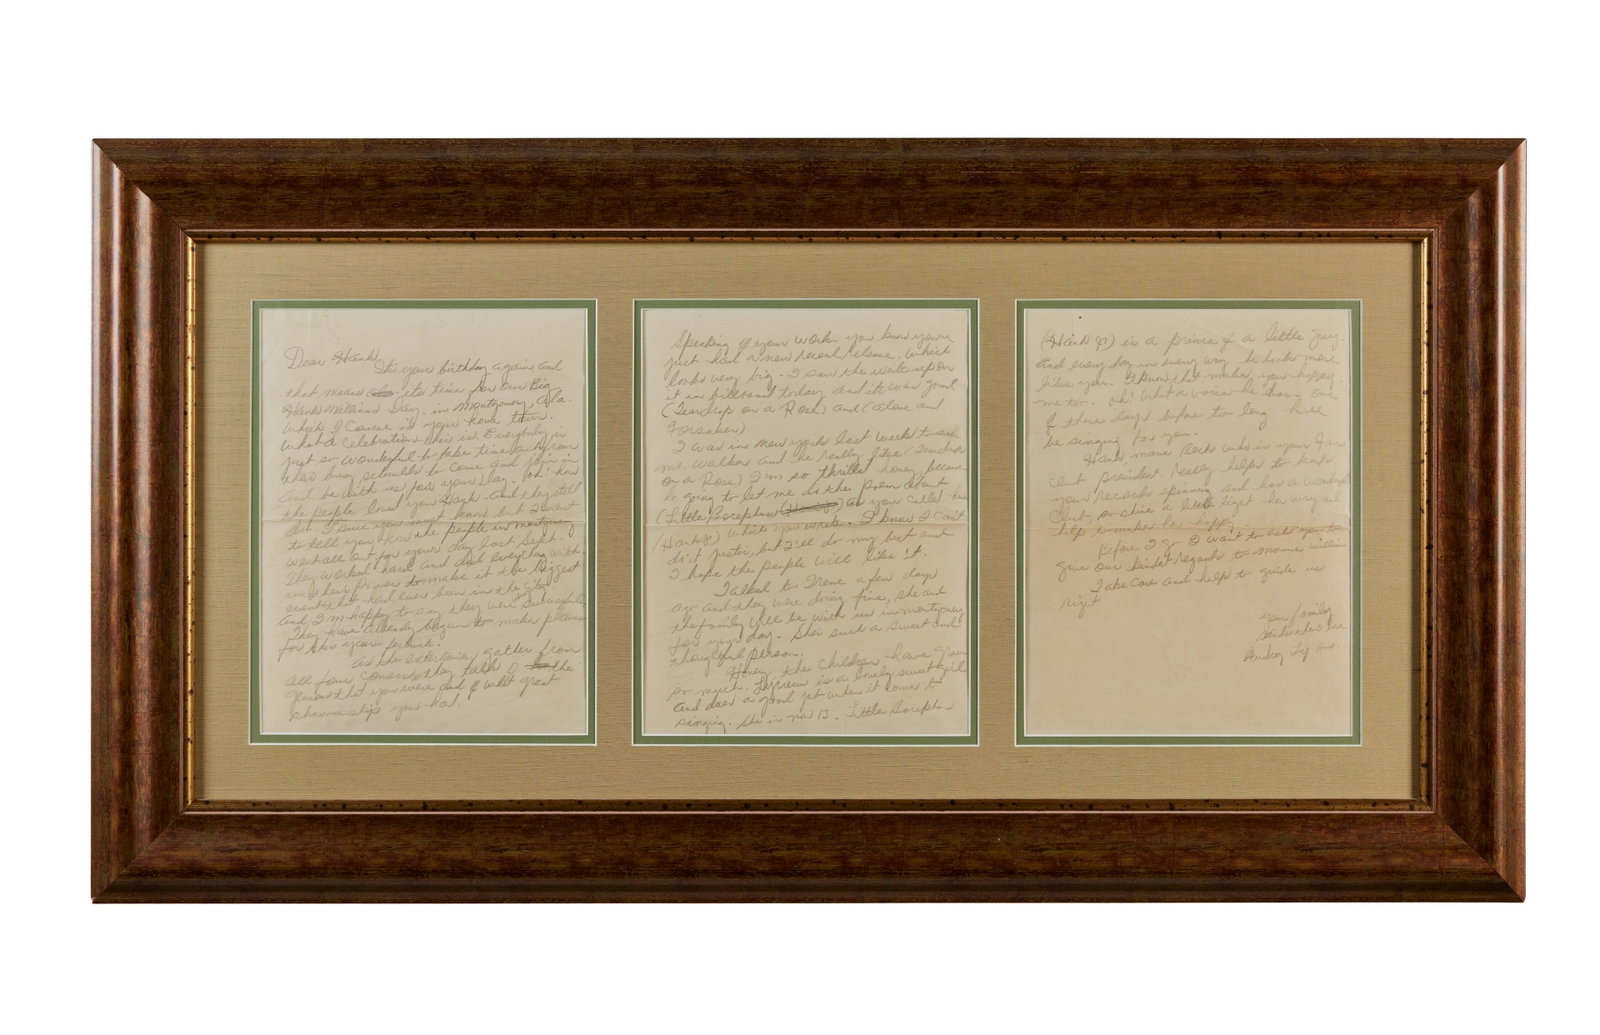 Dear Hank,
Its your birthday again and
that means its time for our Big
Hank Williams Day. in Montgomery, Ala.
Which of Course is your Home town.
What a Celebration this is Everybody is
just so wonderful to take time out from
their busy schedules to Come and join in
and be with us for your Day. Oh! how
the people loved you Hank - and they still
do. I sure you must know but I want
to tell you how the people in montgomery
went all out for your day last Sept.
They worked hard and did everything with-
in their Power to make it the biggest
event that had ever been in the City
and I'm happy to say they were successful
They have already begun to make plans
for this years
As the entertainers gather from
all four corners they talk of the
genius that you were and of what great
showmanship you had.
Speaking of your work you know you've
just had a new record release, which
looks very big. I saw the write upon
it in billboard today and it was good
(Teardrop on a Rose) and (Alone and
Forsaken)
I was in new york last week to see
mr. Walker and he really likes (Teardrop
on a Rose) I'm so thrilled honey, because
he going to let me do the poem about
(Little Bocephus) as you called him
(Hank Jr) which you wrote. I know I can't
do it justice, but I'll do my best and
I hope the people will like it.
I talked to Irene a few days
ago and they were doing fine, she and
the family will be with us in montgomery
for your day. She's such a sweet and
thoughtful person.
Honey, the children have grown
so much. Lycrecia is a lovely sweet girl
and does a good job when it comes to
singing. She is now 13 - Little Bocephus
(Hank Jr) is a prince of a little guy.
And every day in every way he looks more
like you. I know that makes you happy.
me too. Oh! What a voice he has. One
of these days before too long he'll
be singing for you.
Hank marie Beck who is your Fan
Club president really helps to keep
your records spinning and has a wonderful
Club, so shine a little light her way and
help to make her happy.
Before I go I want to ask you to
give our kindest regards to momie william
Take care and help to guide us
right
your family
Audrey Lyc Hank